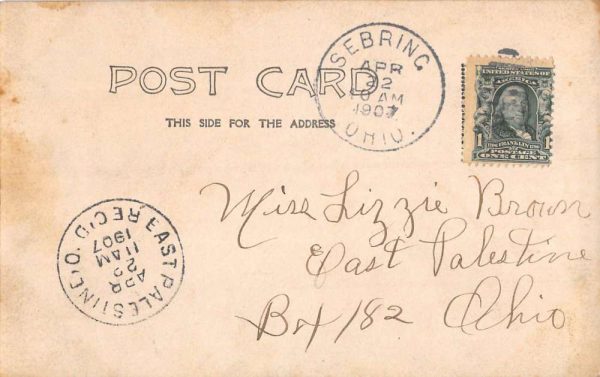 POST CARD
THIS SIDE FOR THE ADDRESS
SEBRING
APR
22
10 AM
1907
OHIO.
UNITED STATES OF
AMERICA
1 FRANKLIN 1
POSTAGE
ONE CENT
Miss Lizzie Brown
East Palestine
Box 182 Ohio
EAST PALESTINE, O. REC'D.
APR
22
11 AM
1907